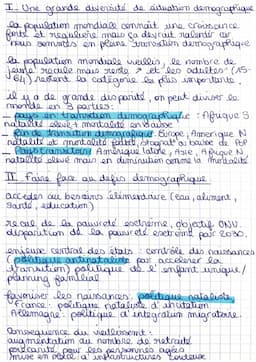 I. Une grande diversité de situation demographique
la population mondiale connait une croissance
forte et reguliere mais ça devrait ralentir car
nous sommes en pleine transition demographique
la population mondiale vieillie, le nombre de
jeune recule mais reste ↗ et les adultes (15-
64) restent la categorie la plus importante.
il y a de grande disparité, on peut diviser le
monde en 3 parties:
- pays en transition demographique : Afrique S
natalité elevé + mortalité en baisse
- fin de transition demographique: Europe, Amerique N
natalité et mortalité faible, stagnat° ou baisse de POP
- Pays transitions Amerique latine, Asie, Afrique N
natalité elevé mais en diminution comme la mortalité
II. Faire face au defis demographique
acceder au besoins élementaire (eau, aliment,
santé, education)
recul de la pauvreté extrême, objectif ONU
disparition de la pauvreté extrême par 2030.
enjeux central des états : contrôle des naissances
(politique antinataliste par accelerer la
transition) politique de l'enfant unique/
planning familial
favoriser les naissances, politique nataliste
France: politique nataliste d'incitation
Allemagne: politique d'integration migratoire.
Consequence du vieillissement:
augmentation du nombre de retraité
précarité pour les personnes agées
mise en place d'infrastructures